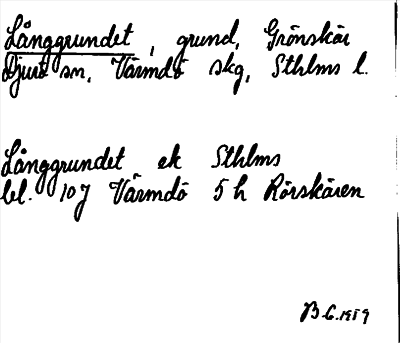 Långgrundet, grund, Grönskär
Djurö sn, Värmdö skg, Sthlms l.
Långgrundet ek Sthlms
bl. 10J Värmdö 5 h Rörskären
B.G. 1959